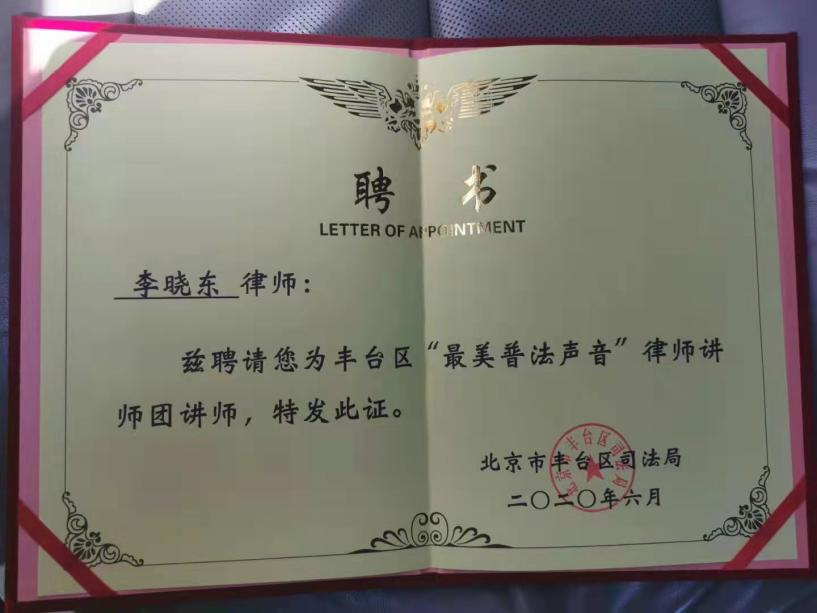 聘 书
LETTER OF APPOINTMENT
李晓东 律师：
兹聘请您为丰台区“最美普法声音”律师讲
师团讲师，特发此证。
北京市丰台区司法局
二〇二〇年六月
北京市丰台区司法局